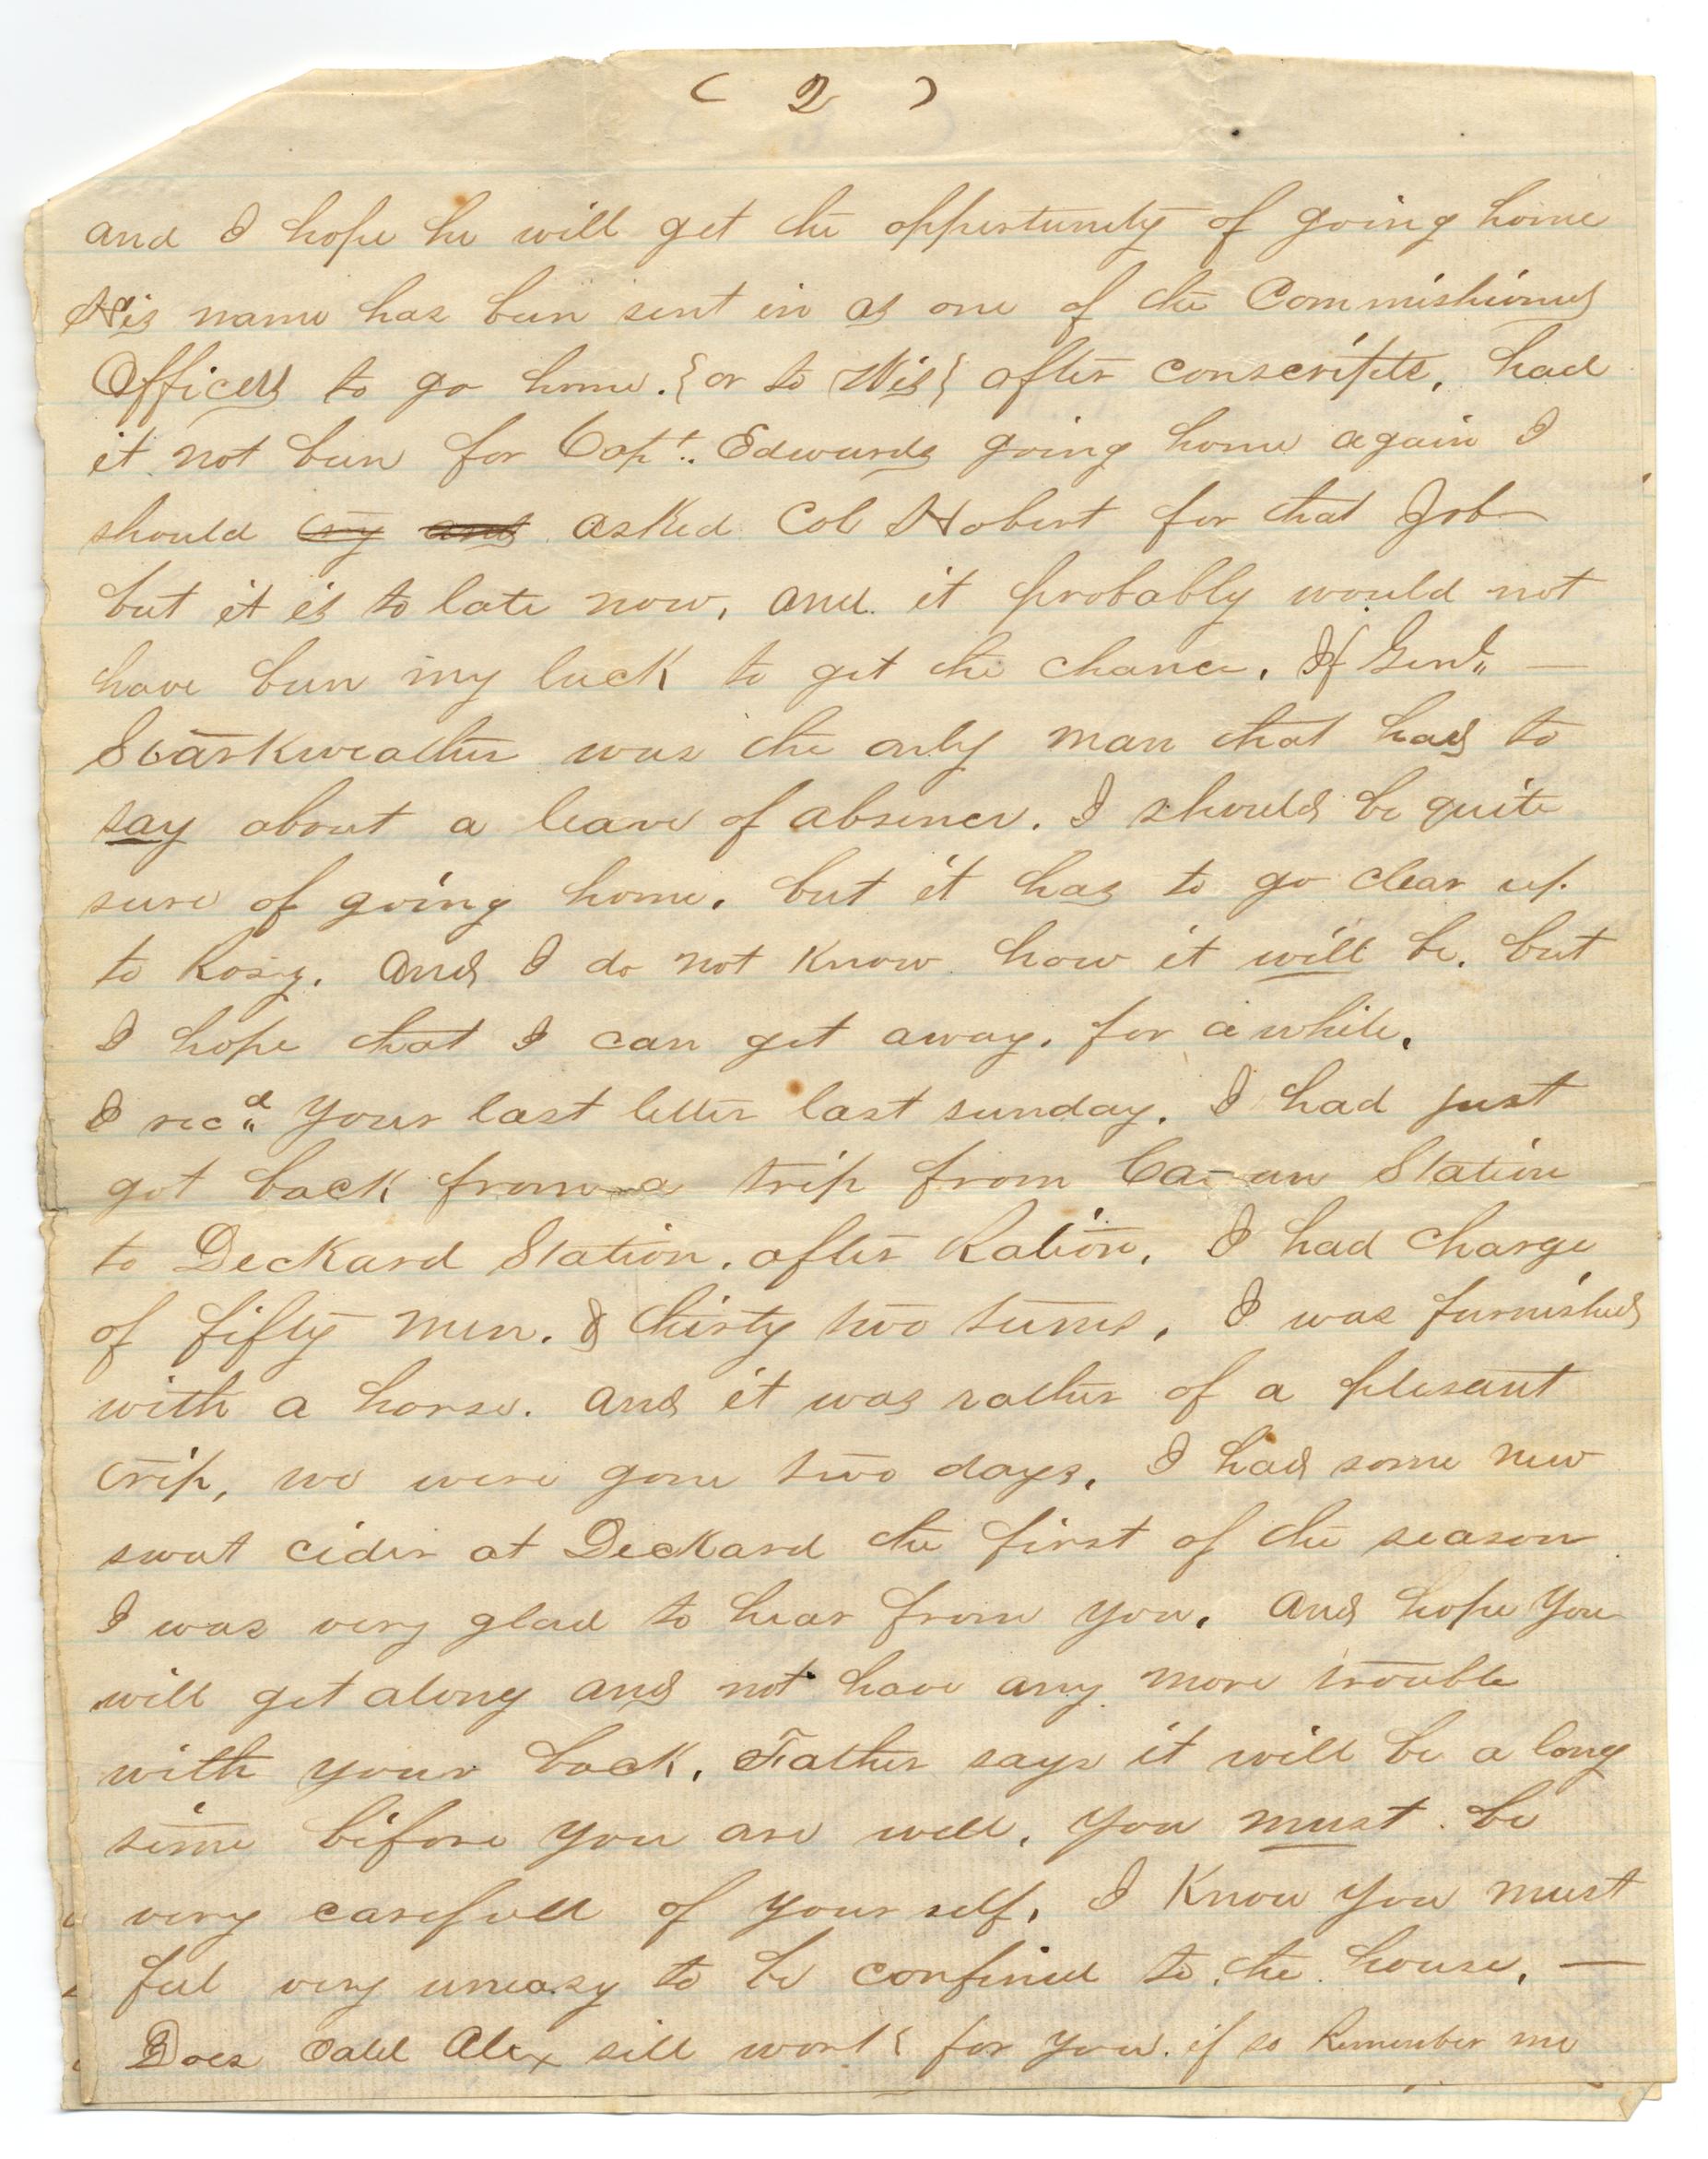 ( 2 )
and I hope he will get the oppertunity of going home
His name has been sent in as one of the Commishioned
Officers to go home. {or to Wis} after conscripts, had
it not been for Capt. Edwards going home again I
should try and asked Col Hobert for that Job
but it is to late now, and it probably would not
have been my luck to get the chance. If Genl. —
Starkweather was the only man that had to
say about a leave of absence. I should be quite
sure of going home. but it has to go clear up
to Rosy. and I do not know how it will be. but
I hope that I can get away. for a while.
I recd. your last letter last sunday. I had just
got back from a trip from Cowan Station
to Deckard Station. after Ration. I had charge
of fifty men. & thirty two teams. I was furnished
with a horse. and it was rather of a plesant
trip, we were gone two days. I had some new
sweet cider at Deckard the first of the season
I was very glad to hear from you. and hope you
will get along and not have any more trouble
with your back. Father says it will be a long
time before you are well. you must be
very carefull of your self. I know you must
feel very uneasy to be confined to the house. —
Does Oald Alex sill work for you. if so Remember me